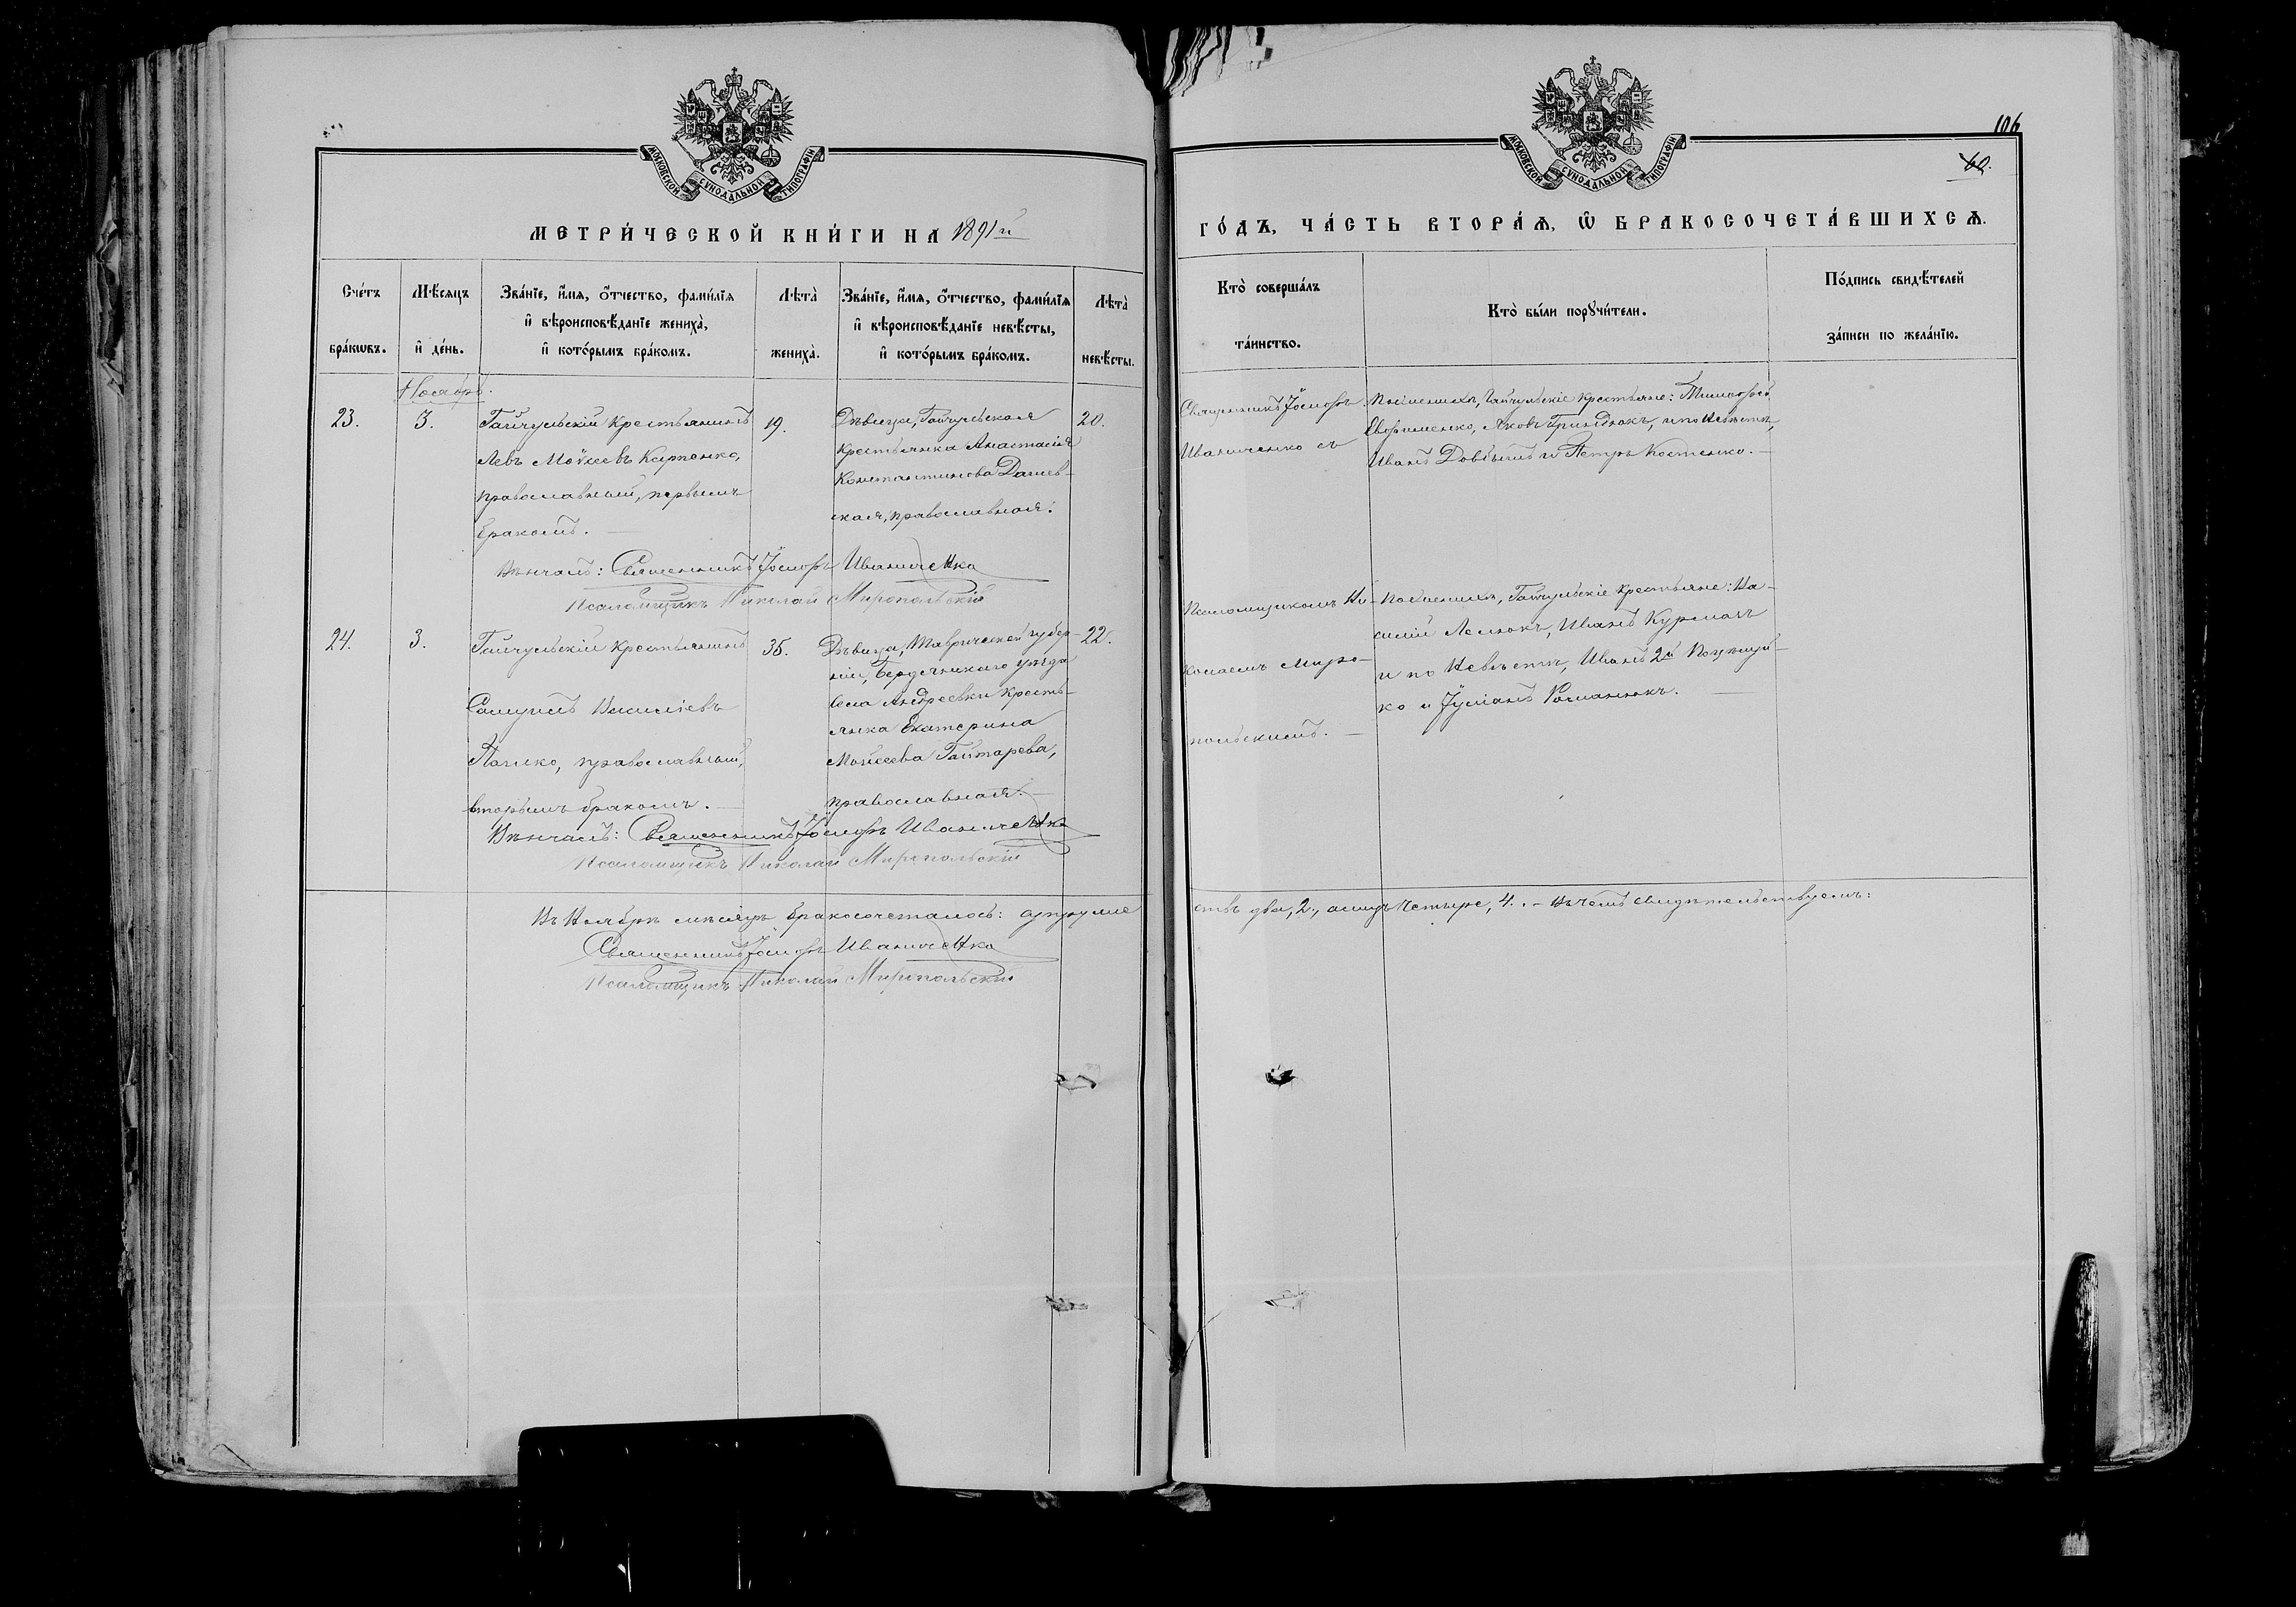 МОСКОВСКОЙ СѴНОДАЛЬНОЙ ТИПОГРАФІИ
МЕТРИ́ЧЕСКОЙ КНИ́ГИ НА 1891й
Сче́тъ бра́кѡвъ.
Мѣ́сяцъ и҆ де́нь.
Зва́нїе, и҆́мѧ, ѻ҆́тчество, фами́лїѧ
и҆ вѣроисповѣ́данїе жениха̀,
и҆ кото́рымъ бра́комъ.
Лѣта̀ жениха̀.
Зва́нїе, и҆́мѧ, ѻ҆́тчество, фами́лїѧ
и҆ вѣроисповѣ́данїе невѣ́сты,
и҆ кото́рымъ бра́комъ.
Лѣта̀ невѣ́сты.
Ноябрь.
23.
3.
Гайчульскій крестьянинъ
Левъ Моѵсеевъ Карпенко,
православный, первымъ
бракомъ. —
19.
Дѣвица, Гайчульская
крестьянка Анастасія
Константинова Дашев-
ская, православная.
20.
Вѣнчалъ: Священникъ Іосифъ Иваниченко
Псаломщикъ Николай Миропольскій
24.
3.
Гайчульскій крестьянинъ
Самуилъ Василіевъ
православный,
вторымъ бракомъ. —
35.
Дѣвица, Таврической губер-
ніи, Бердянскаго уѣзда
села Андреевки кресть-
янка Екатерина
Моисеева Гайтарева,
православная. —
22.
Вѣнчалъ: Священникъ Іосифъ Иваниченко
Псаломщикъ Николай Миропольскій
Въ Ноябрѣ мѣсяцѣ бракосочеталось: супруже
Священникъ Іосифъ Иваниченко
Псаломщикъ Николай Миропольскій
106
60.
МОСКОВСКОЙ СѴНОДАЛЬНОЙ ТИПОГРАФІИ
ГО́ДЪ, ЧА́СТЬ ВТОРА́Ѧ, Ѡ҆ БРАКОСОЧЕТА́ВШИХСѦ.
Кто̀ соверша́лъ
та́инство.
Кто̀ бы́ли порꙋчи́тели.
По́дпись свидѣ́телей
за́писи по жела́нїю.
Священникъ Іосифъ
Иваниченко съ
Псаломщикомъ Ни-
колаемъ Миро-
польскимъ. —
По женихѣ, Гайчульскіе крестьяне: Тимофей
Ефименко, Яковъ Гриндюкъ, и по невѣстѣ,
Иванъ Довбышъ и Петръ Костенко. —
По женихѣ, Гайчульскіе крестьяне: Ва-
силій Лемокъ, Иванъ Курмазъ
и по невѣстѣ, Иванъ 2й
ко и Іуліанъ Романюкъ.
ствъ два, 2., а лицъ четыре, 4. — Въ чемъ свидѣтельствуемъ: